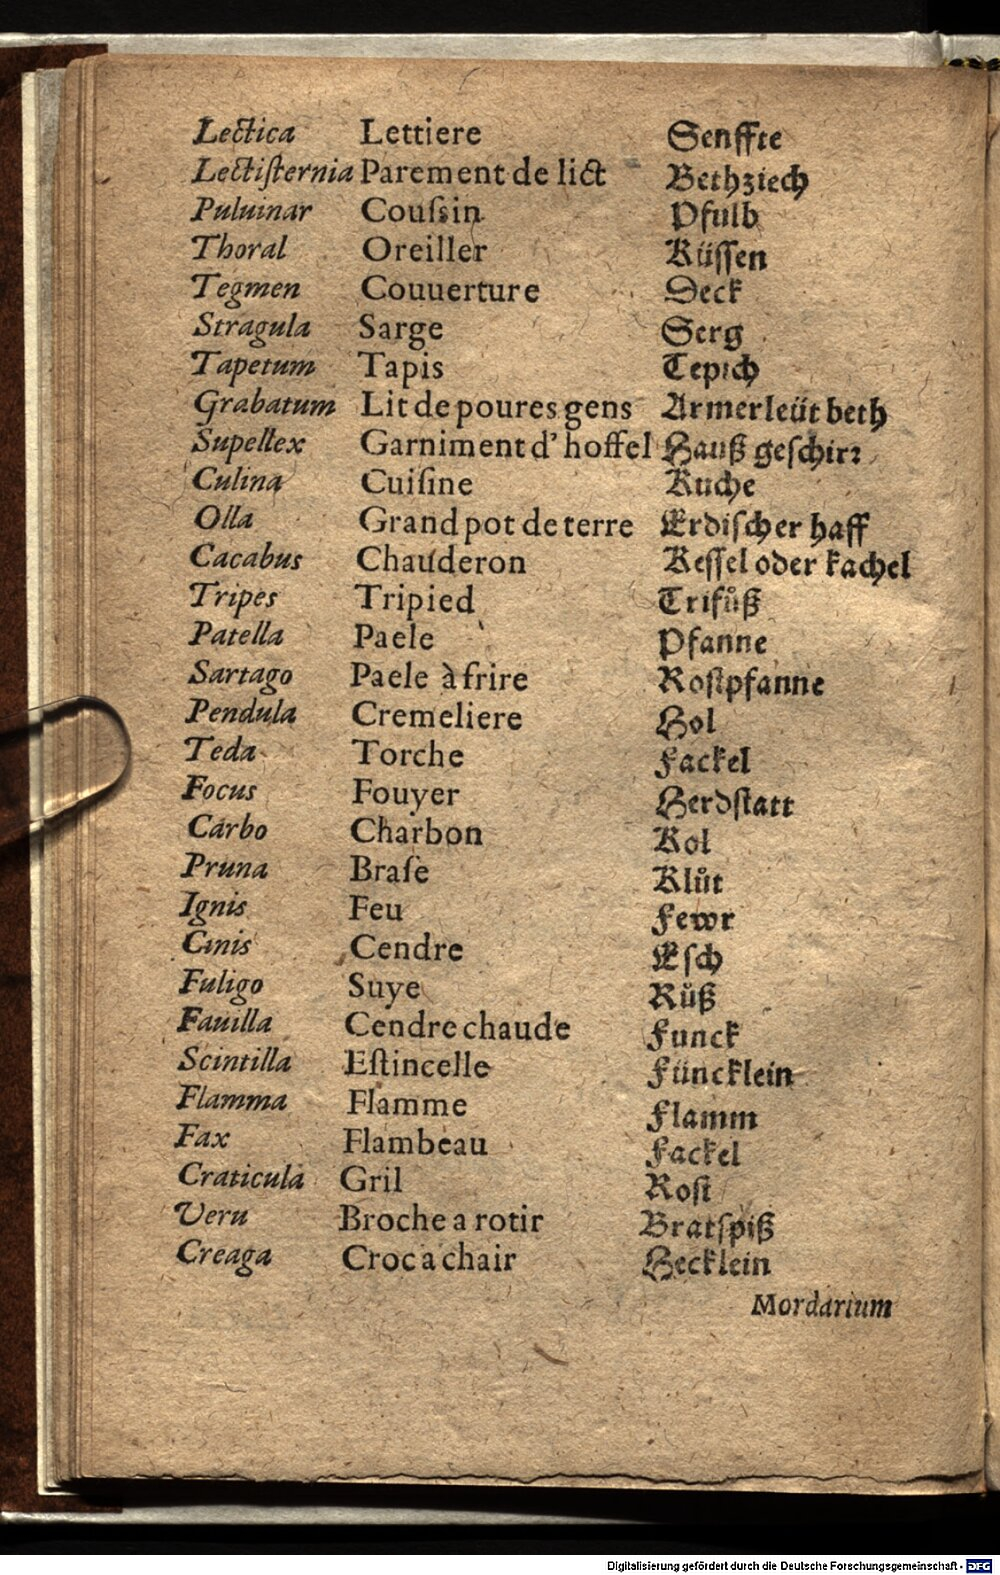 Lectica Lettiere Senffte
Lectiſternia Parement de lict Bethziech
Puluinar Couſsin Pfulb
Thoral Oreiller Küſſen
Tegmen Couuerture Deck
Stragula Sarge Serg
Tapetum Tapis Tepich
Grabatum Lit de poures gens Armerleüt beth
Supellex Garniment d' hoſtel Hauß geſchirꝛ
Culina Cuiſine Kuche
Olla Grand pot de terre Erdiſcher haff
Cacabus Chauderon Keſſel oder kachel
Tripes Tripied Trifůß
Patella Paele Pfanne
Sartago Paele à frire Roſtpfanne
Pendula Cremeliere Hol
Teda Torche Fackel
Focus Fouyer Herdſtatt
Carbo Charbon Kol
Pruna Braſe Klůt
Ignis Feu Fewr
Cinis Cendre Eſch
Fuligo Suye Růß
Fauilla Cendre chaude Funck
Scintilla Eſtincelle Füncklein
Flamma Flamme Flamm
Fax Flambeau Fackel
Craticula Gril Roſt
Veru Broche a rotir Bratſpiß
Creaga Croc a chair Hecklein
Mordarium
Digitalisierung gefördert durch die Deutsche Forschungsgemeinschaft - DFG